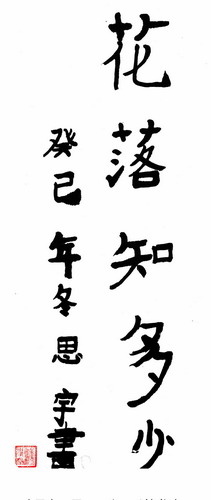 花落知多少
癸已年冬思宇書